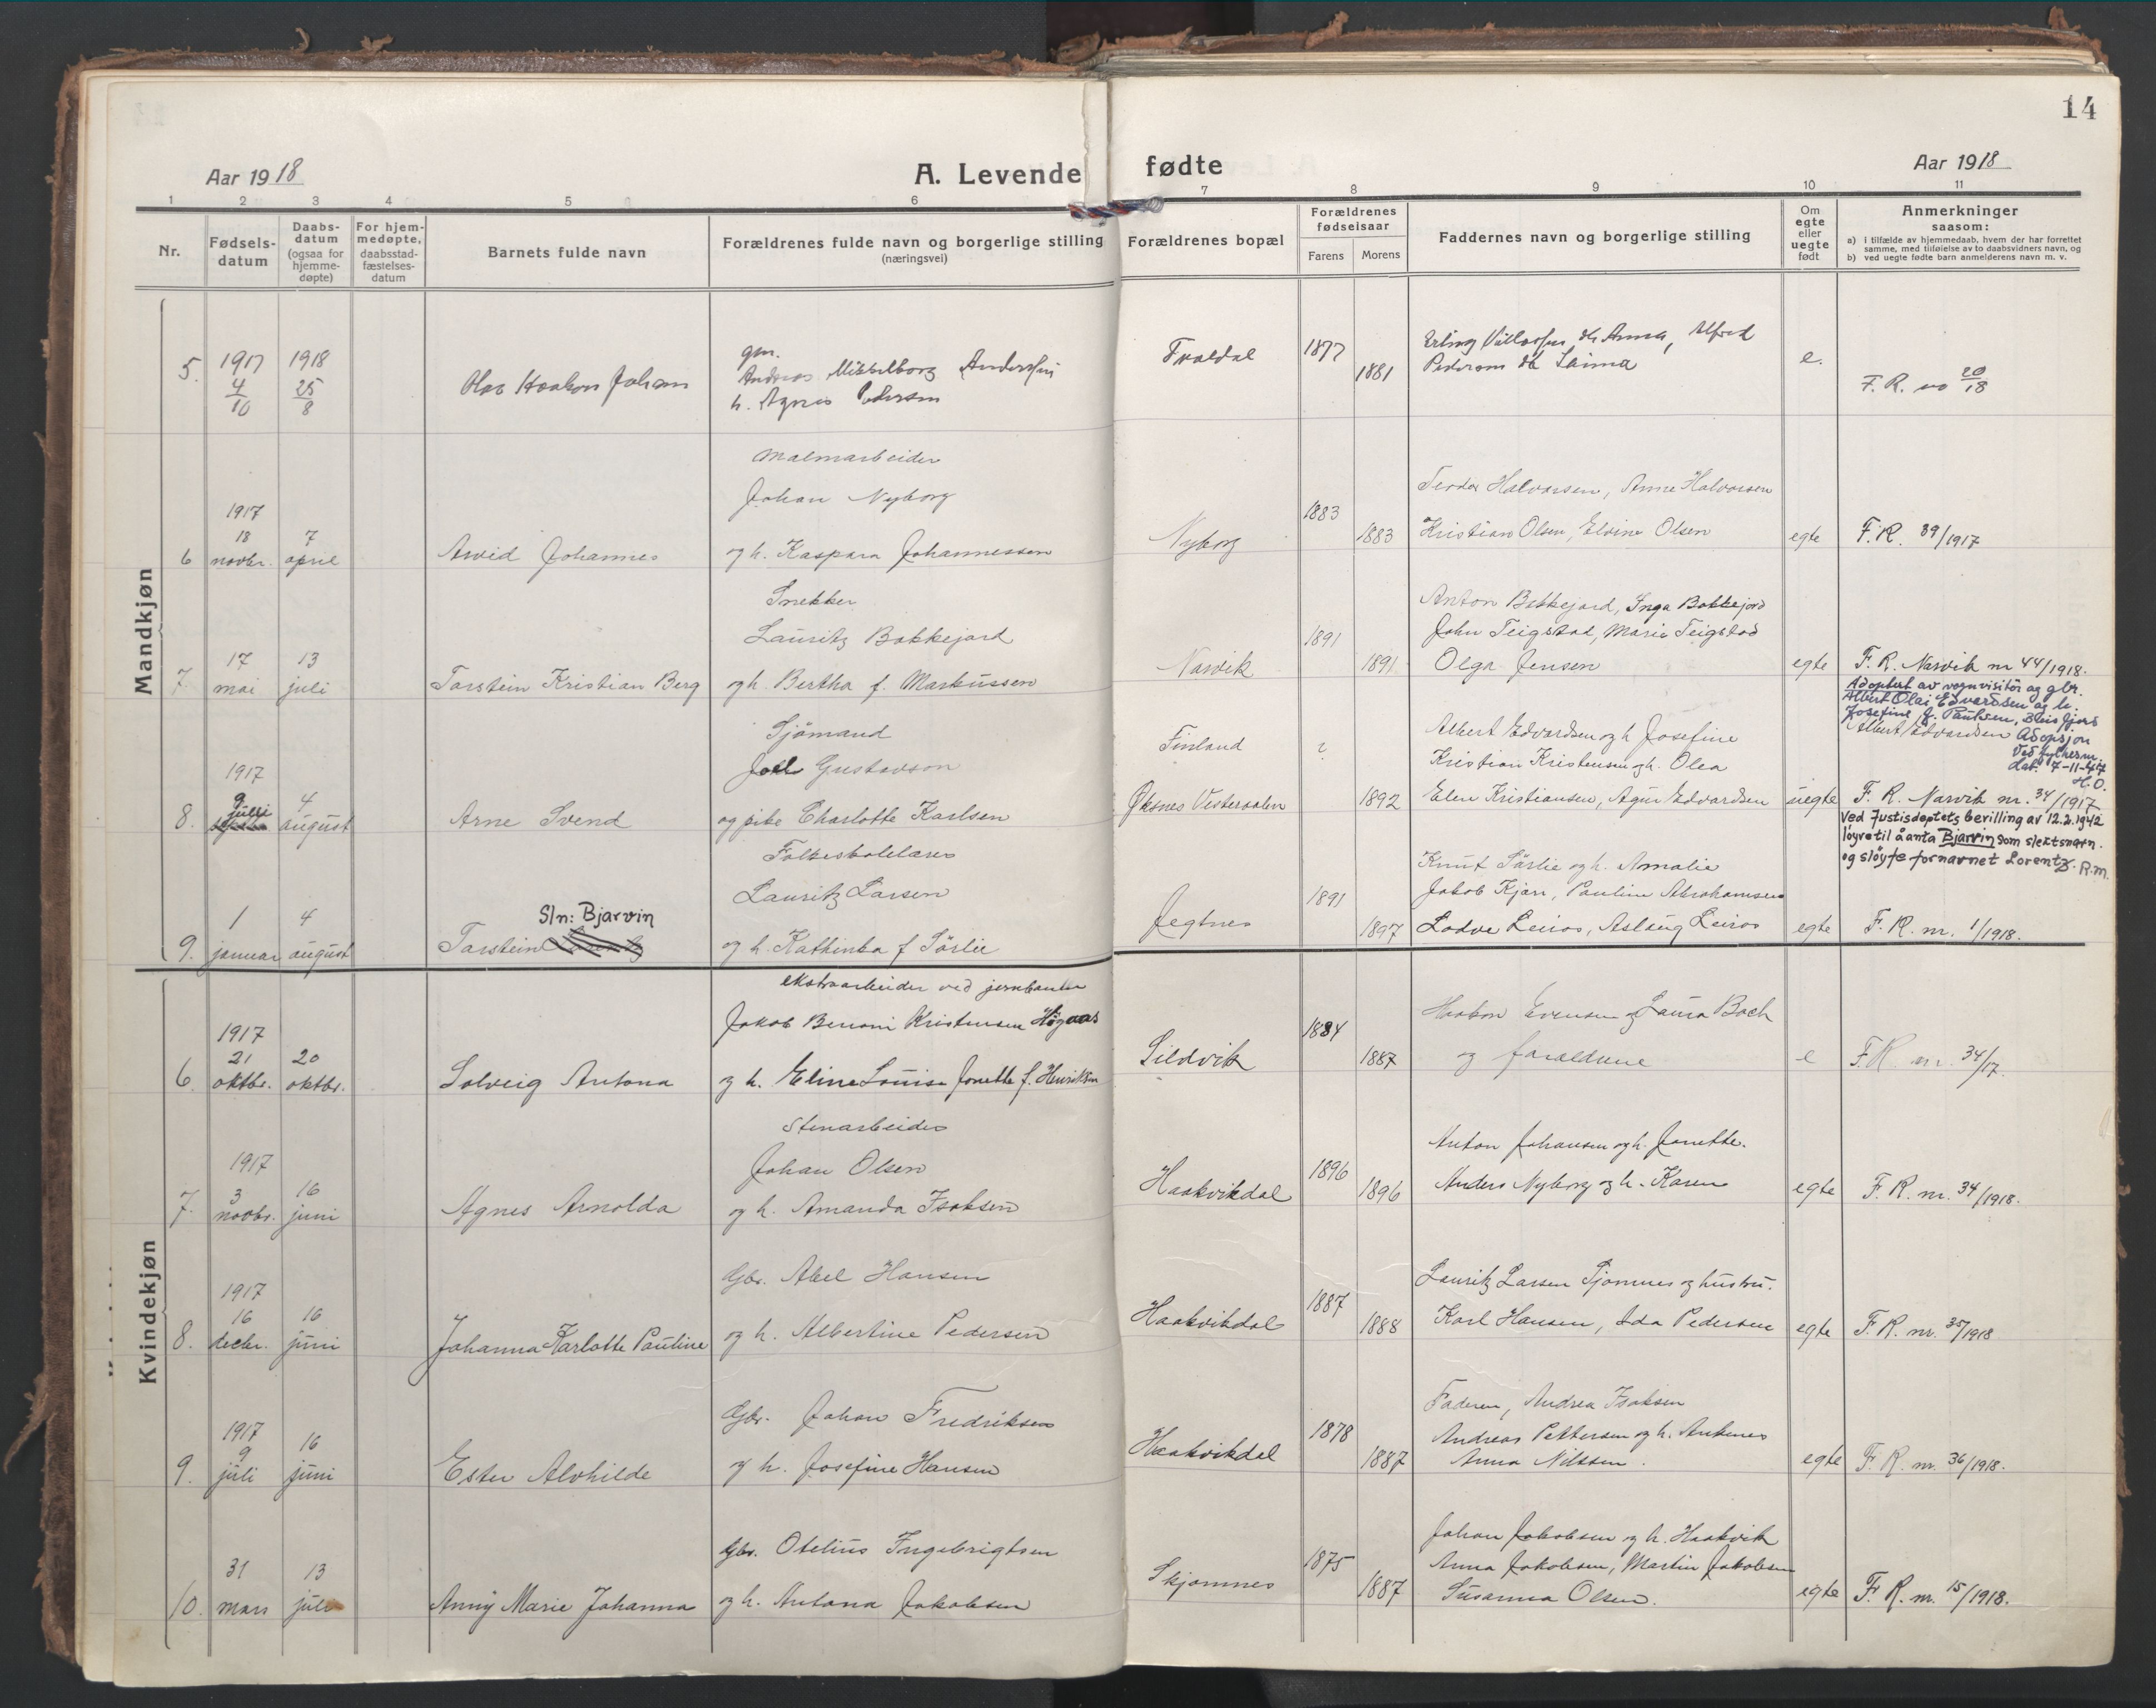 14
Aar 1918
A. Levende fødte
Aar 1918
1 2 3 4 5 6 7 8 9 10 11
Nr.
Fødsels-
datum
Daabs-
datum
(ogsaa for
hjemme-
døpte)
For hjem-
medøpte,
daabsstad-
fæstelses-
datum
Barnets fulde navn
Forældrenes fulde navn og borgerlige stilling
(næringsvei)
Forældrenes bopæl
Forældrenes
fødselsaar
Farens Morens
Faddernes navn og borgerlige stilling
Om
egte
eller
uegte
født
Anmerkninger
saasom:
a) i tilfælde av hjemmedaab, hvem der har forrettet
samme, med tilføielse av to daabsvidners navn, og
b) ved uegte fødte barn anmelderens navn m. v.
Mandkjøn
5. 1917 4/10 1918 25/8
Olav Haakon Johan
gm.
Andreas Mikkelborg Anderssen
h. Agnes Pedersen
1877 1881
Alfred
Pedersen
e.
F. R. no 20/18
6 1917 18 novbr. 7 april
Arvid Johannes
Malmarbeider
Johan Nyborg
og h. Kaspara Johannessen
Nyborg
1883 1883
Halvorsen, Anne Halvorsen
Kristian Olsen, Elvine Olsen
egte
F. R. 39/1917
7. 17 mai 13 juli
Torstein Kristian Berg
Snekker
Lauritz Bokkejord
og h. Bertha f. Markussen
Narvik
1891 1891
Anton Bokkejord, Inga Bokkejord
John Teigstad, Marie Teigstad
Olga Jensen
egte
F. R. Narvik nr 44/1918.
8. 1917 9 juli 4 august
Arne Svend
Sjömand
Joel Gustavson
og pike Charlotte Karlsen
Finland
Øksnes Vesteraalen
? 1892
Albert Edvardsen og h. Josefine
Kristian Kristensen og h. Olea
Elen Kristiansen, Edvardsen
uegte
Adoptert av vognvisitör og gbr.
Albert Olai Edvardsen og h.
Josefine f. Paulsen,
Albert Edvardsen Adopsjon
ved fylkesm.
dat. 7-11-47
H.O.
F. R. Narvik nr. 34/1917
9. 1 januar 4 august
Sln: Bjarvin
Torstein
Folkeskolelærer
Lauritz Larsen
og h. Kathinka f Sörlie
Jegtnes
1891 1897
Knut Sörlie og h. Amalie
Jakob Kjær, Pauline Abrahamsen
Lodve Leiros, Aslaug Leiros
egte
Ved Justisdeptets bevilling av 12.2.1942
löyve til å anta Bjarvin som slektsnavn.
og slöyfe fornavnet Lorentz. R.m.
F. R. nr. 1/1918.
Kvindekjøn
6. 1917 21 oktbr. 20 oktbr.
Solveig Antona
ekstraarbeider ved jernbanen
Jakob Benoni Kristensen Högaas
og h. Eline Louise Jonette f. Henriksen
Sildvik
1884 1887
Haakon Evensen og Laura Bach
og forældrene
e
F. R. nr. 34/17.
7. 1917 3 novbr. 16 juni
Agnes Arnolda
Stenarbeider
Johan Olsen
og h. Amanda Isaksen
Haakvikdal
1896 1896
Anton Johansen og h. Jonette.
Anders Nyborg og h. Karen
egte
F. R. nr. 34/1918.
8. 1917 16 decbr. 16 juni
Johanna Karlotte Pauline
Gbr. Abel Hansen
og h. Albertine Pedersen
Haakvikdal
1887 1888
Lauritz Larsen Tjomnes og hustru.
Karl Hansen, Ida Pedersen
egte
F. R. nr. 35/1918
9. 1917 9 juli 16 juni
Ester Alvhilde
Gbr. Johan Fredriksen
og h. Josefine Hansen
Haakvikdal
1878 1887
Faderen, Andrea Isaksen
Andreas Pettersen og h.
Anna Nilssen.
egte
F. R. nr. 36/1918.
10. 31 mars 13 juli
Anny Marie Johanna
Gbr. Otelius Ingebrigtsen
og h. Antona Jakobsen
Skjomnes
1875 1887
Johan Jakobsen og h. Haakvik
Anna Jakobsen, Martin Jakobsen
Susanna Olsen.
egte
F. R. nr. 15/1918.